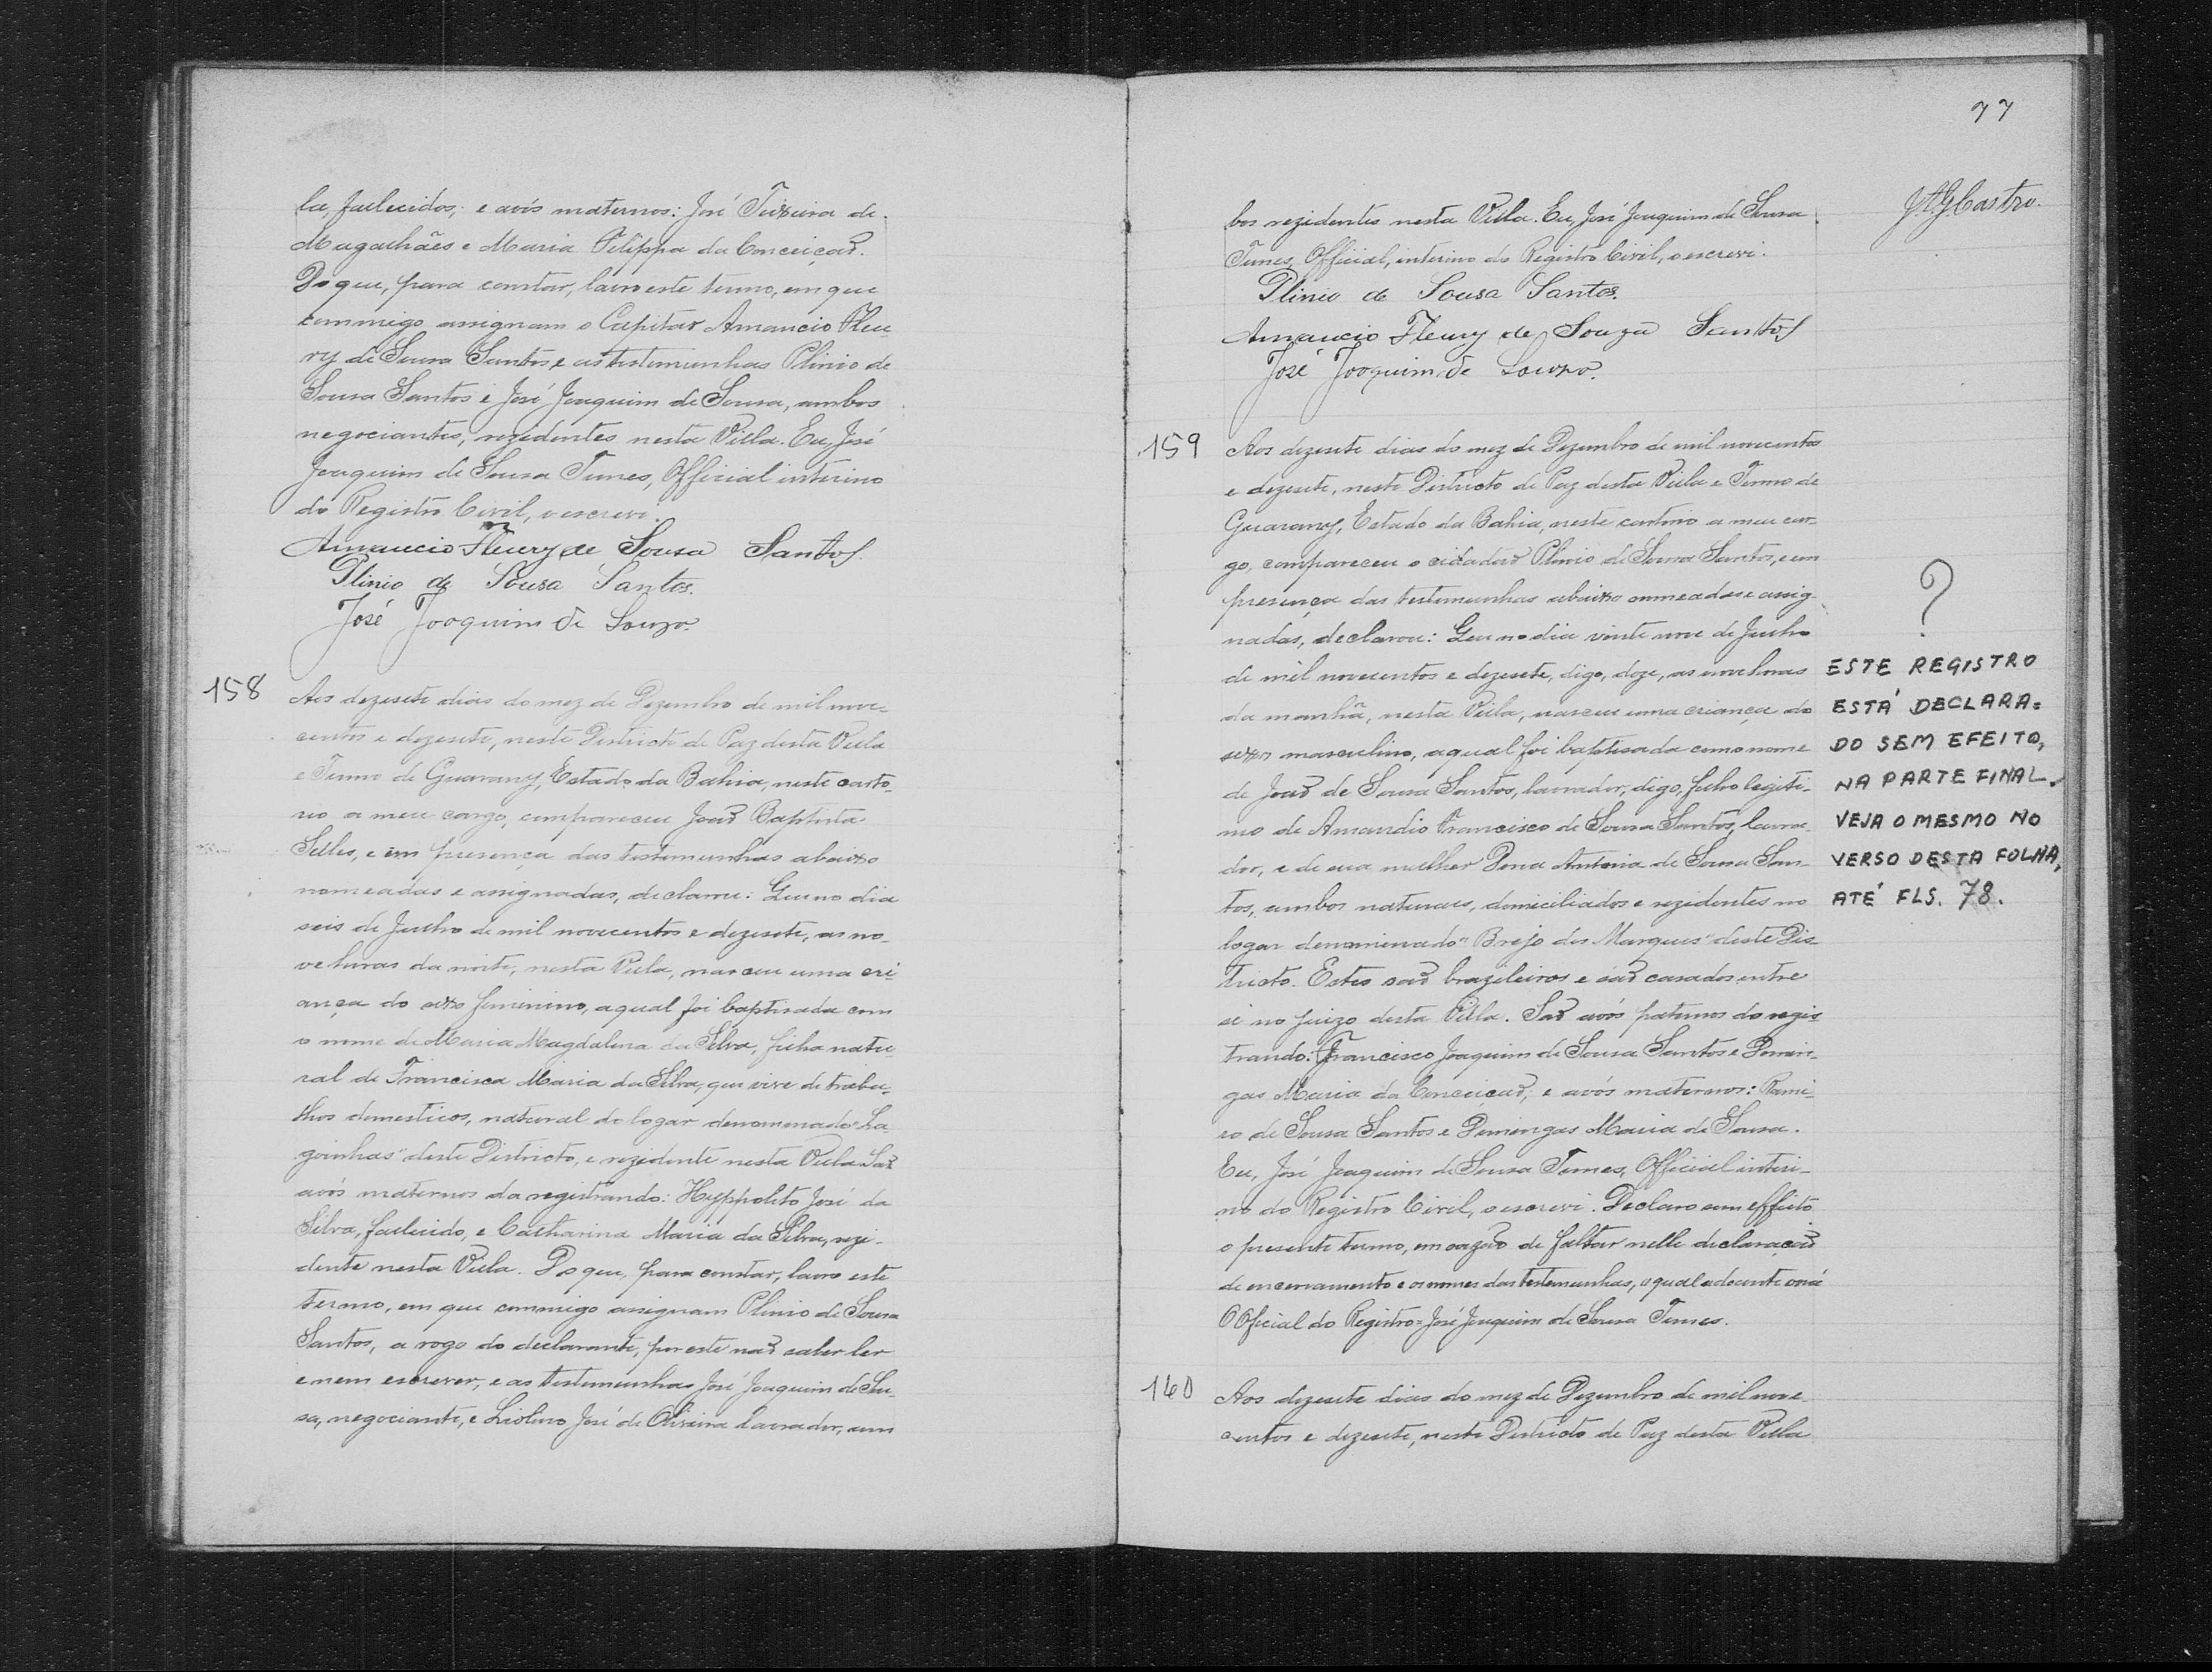 la, fallecidos; e avós maternos: José Teixeira de
Magalhães e Maria Filippa da Conceição.
Do que, para constar, lavro este termo, em que
commigo assignam o Capitão Amancio Fleu-
ry de Sousa Santos, e as testemunhas Plinio de
Sousa Santos e José Joaquim de Sousa, ambos
negociantes, rezidentes nesta Villa. Eu, José
Joaquim de Sousa Tunes, Official interino
do Registro Civil, o escrevi.
Amancio Fleury de Sousa Santos.
Plinio de Sousa Santos.
José Joaquim de Souza.
158 Aos dezesete dias do mez de Dezembro de mil nove-
centos e dezesete, neste Districto de Paz desta Villa
e Termo de Guarany, Estado da Bahia, neste carto-
rio a meu cargo, compareceu João Baptista
Selles, e em presença das testemunhas abaixo
nomeadas e assignadas, declarou: Que no dia
seis de Julho de mil novecentos e dezesete, as no-
ve horas da noite, nesta Villa, nasceu uma cri-
ança do sexo feminino, a qual foi baptisada com
o nome de Maria Magdalena da Silva, filha natu-
ral de Francisca Maria da Silva, que vive de traba-
lhos domesticos, natural do logar denominado "La-
goinhas" deste Districto, e rezidente nesta Villa. São
avós maternos da registrando: Hyppolito José da
Silva, fallecido, e Catharina Maria da Silva, rezi-
dente nesta Villa. Do que, para constar, lavro este
termo, em que commigo assignam Plinio de Sousa
Santos, a rogo do declarante, por este não saber ler
e nem escrever, e as testemunhas José Joaquim de Sou-
sa, negociante, e Liolino José de Oliveira lavrador, am-
77
J.A.G. Castro.
bos rezidentes nesta Villa. Eu, José Joaquim de Sousa
Tunes, Official, interino do Registro Civil, o escrevi.
Plinio de Sousa Santos.
Amancio Fleury de Souza Santos
José Joaquim de Souza.
159 Aos dezesete dias do mez de Dezembro de mil novecentos
e dezesete, neste Districto de Paz desta Villa e Termo de
Guarany, Estado da Bahia, neste cartorio a meu car-
go, compareceu o cidadão Plinio de Sousa Santos, e em
presença das testemunhas abaixo nomeadas e assig-
nadas, declarou: Que no dia vinte nove de Junho
de mil novecentos e dezesete, digo, doze, as nove horas
da manhã, nesta Villa, nasceu uma criança do
sexo masculino, a qual foi baptisada com o nome
de João de Sousa Santos, lavrador, digo, filho legiti-
mo de Amandio Francisco de Sousa Santos, lavra-
dor, e de sua mulher Dona Antonia de Sousa San-
tos, ambos naturaes, domiciliados e rezidentes no
logar denominado "Brejo dos Marques" deste Dis-
tricto. Estes são brazileiros e são casados entre
si no juizo desta Villa. São avós paternos do regis-
trando: Francisco Joaquim de Sousa Santos e Domin-
gas Maria da Conceição; e avós maternos: Rami-
ro de Sousa Santos e Domingas Maria de Sousa.
Eu, José Joaquim de Sousa Tunes, Official interi-
no do Registro Civil, o escrevi. Declaro sem effeito
o presente termo, em razão de faltar nelle declaração
de encerramento e os nomes das testemunhas, o qual adeante
O Oficial do Registro= José Joaquim de Sousa Tunes.
?
ESTE REGISTRO
ESTÁ DECLARA=
DO SEM EFEITO,
NA PARTE FINAL.
VEJA O MESMO NO
VERSO DESTA FOLHA,
ATÉ FLS. 78.
160 Aos dezesete dias do mez de Dezembro de mil nove-
centos e dezesete, neste Districto de Paz desta Villa